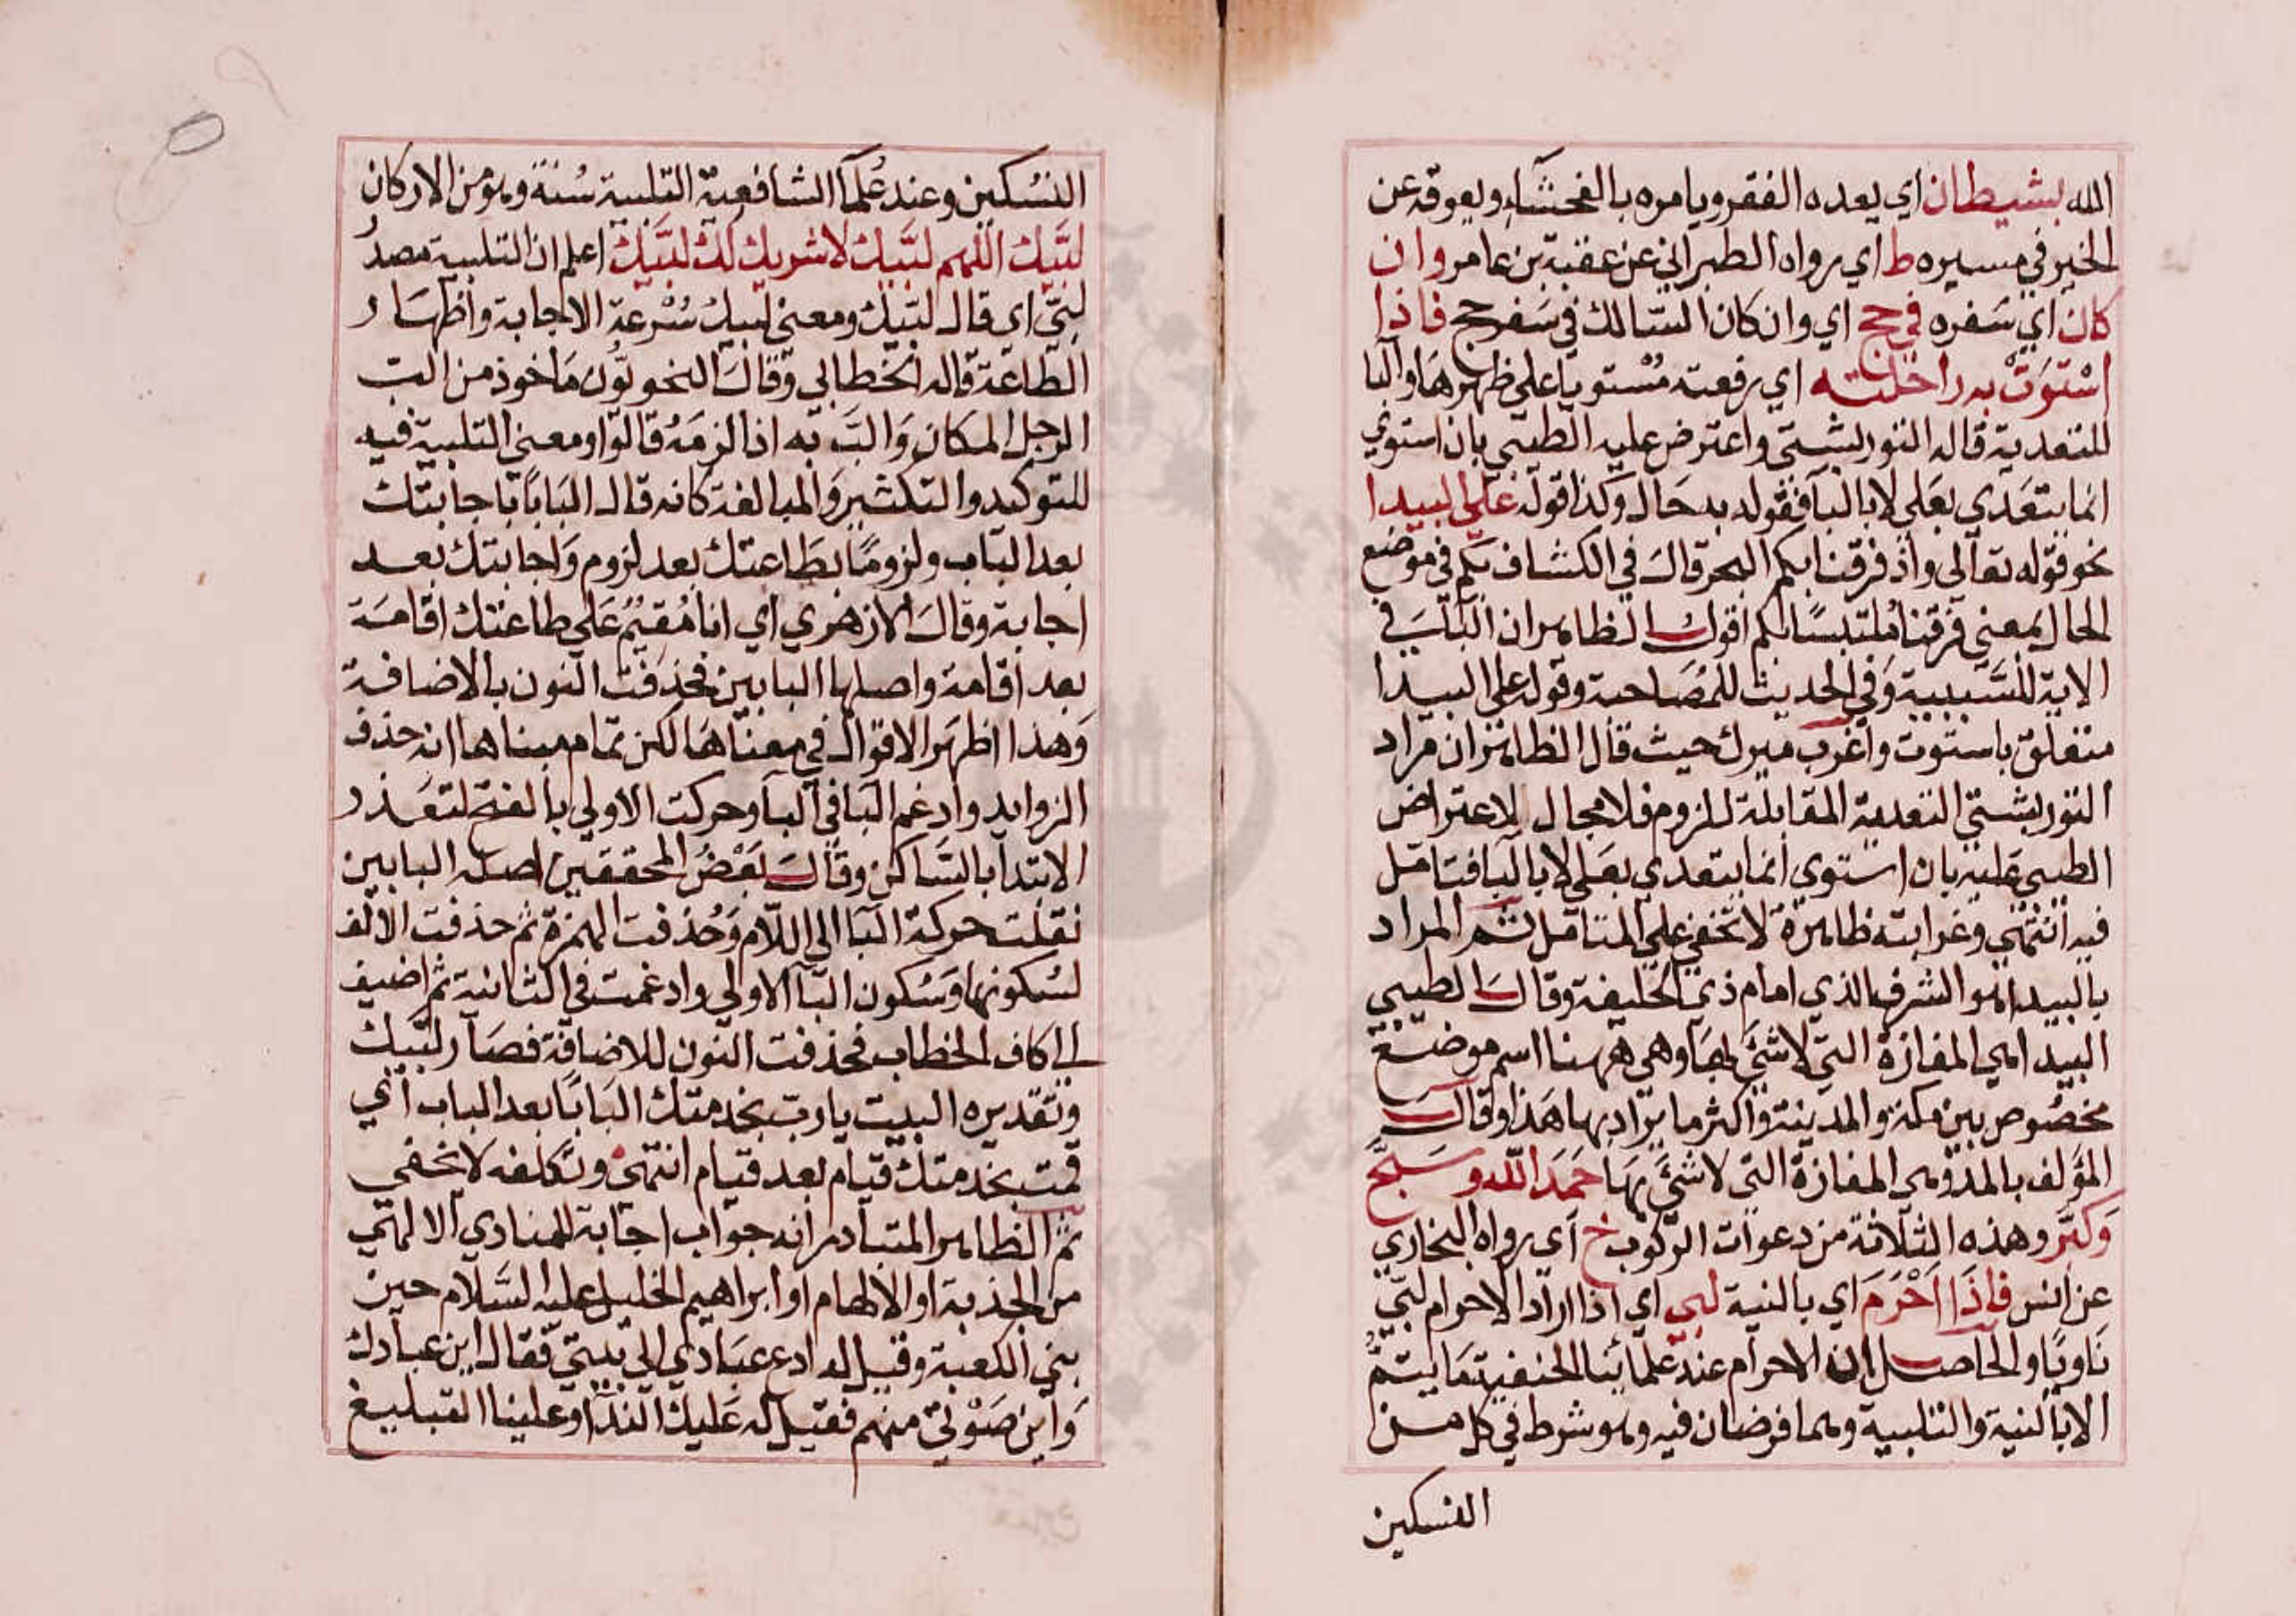 الله بشيطان اي يعده الفقر ويامره بالفحشآء ويعوقه عن
الخير في مسيره ط اي رواه الطبراني عن عقبة بن عامر وان
كان اي سفره في حج اي وان كان السالك في سفر حج فاذا
استوت به راحلته اي رفعته مستويا على ظهرها والبا
للتعدية قاله التوربشتي واعترض عليه الطيبي بان استوي
انما يتعدي بعلي لا بالبآ فقوله به حال وكذا قوله علي البيدا
نحو قوله تعالى واذ فرقنا بكم البحر قال في الكشاف بكم في موضع
الحال بمعني فرقنا ملتبسا بكم اقول الظاهر ان البآ في
الاية للسببية وفي الحديث للمصاحبة وقوله علي البيدا
متعلق باستوت واغرب ميرك حيث قال الظاهر ان مراد
التوربشتي التعدية المقابلة للزوم فلا مجال للاعتراض
الطيبي عليه بان استوي انما يتعدي بعلي لا بالبآ فتامل
فيه انتهي وغرابته ظاهرة لا تخفي علي المتامل ثم المراد
بالبيدا هو الشرف الذي امام ذي الحليفة وقال الطيبي
البيدا هي المفازة التي لا شئ بها وهي ههنا اسم موضع
مخصوص بين مكة والمدينة واكثر ما يراد بها هذا وقال
المؤلف بالمد وهي المفازة التي لا شئ بها حمد الله وسبح
وكبر وهذه الثلاثة من دعوات الركوب خ اي رواه البخاري
عن انس فاذا احرم اي بالنية لبي اي اذا اراد الاحرام لبي
ناويا والحاصل ان الاحرام عند علمائنا الحنفية ما يتم
الا بالنية والتلبية وهما فرضان فيه وهو شرط في كل من
النسكين
النسكين وعند علمآ الشافعية التلبية سنة وهو من الاركان
لبيك اللهم لبيك لا شريك لك لبيك اعلم ان التلبية مصدر
لبي اي قال لبيك ومعني لبيك سرعة الاجابة واظهار
الطاعة قاله الخطابي وقال النحويون ماخوذ من الب
الرجل المكان والب به اذا لزمه قالوا ومعني التلبية فيه
للتوكيد والتكثير والمبالغة كانه قال البابا باجابتك
بعد الباب ولزوما بطاعتك بعد لزوم واجابتك بعد
اجابة وقال الازهري اي انا مقيم علي طاعتك اقامة
بعد اقامة واصلها البابين فحذفت النون بالاضافة
وهذا اظهر الاقوال في معناها لكن تمام مبناها انه حذف
الزوايد وادغم البا في البآ وحركت الاولي بالفتح لتعذر
الابتدا بالساكن وقال بعض المحققين اصله البابين
نقلت حركة البا الى اللام وحذفت الهمزة ثم حذفت الالف
لسكونها وسكون البآ الاولي وادغمت في الثانية ثم اضيف
الي كاف الخطاب فحذفت النون للاضافة فصار لبيك
وتقديره البيت يارب بخدمتك البابا بعد الباب اي
قمت بخدمتك قيام بعد قيام انتهي وتكلفه لا يخفي
ثم الظاهر المتبادر انه جواب اجابة للمنادي الالهي
من الجذبة او الالهام او ابراهيم الخليل عليه السلام حين
بني الكعبة وقيل له ادع عبادي الي بيتي فقال اين عبادك
واين صوتي منهم فقيل له عليك الندآ وعلينا التبليغ